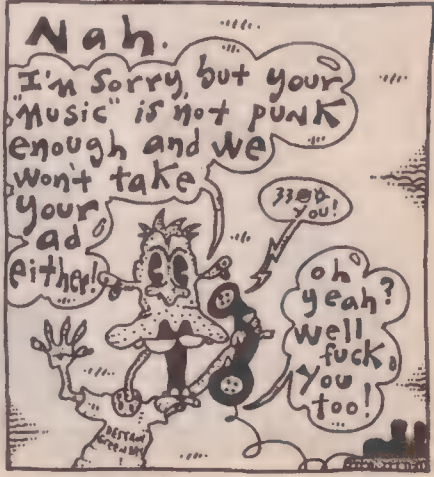 Nah.
I'm sorry, but your
"Music" is not PUNK
enough and we
won't take
your
ad
either!
YOU!
oh
yeah?
well
fuck
you
too!
DESTROY
GREEN DAY
!